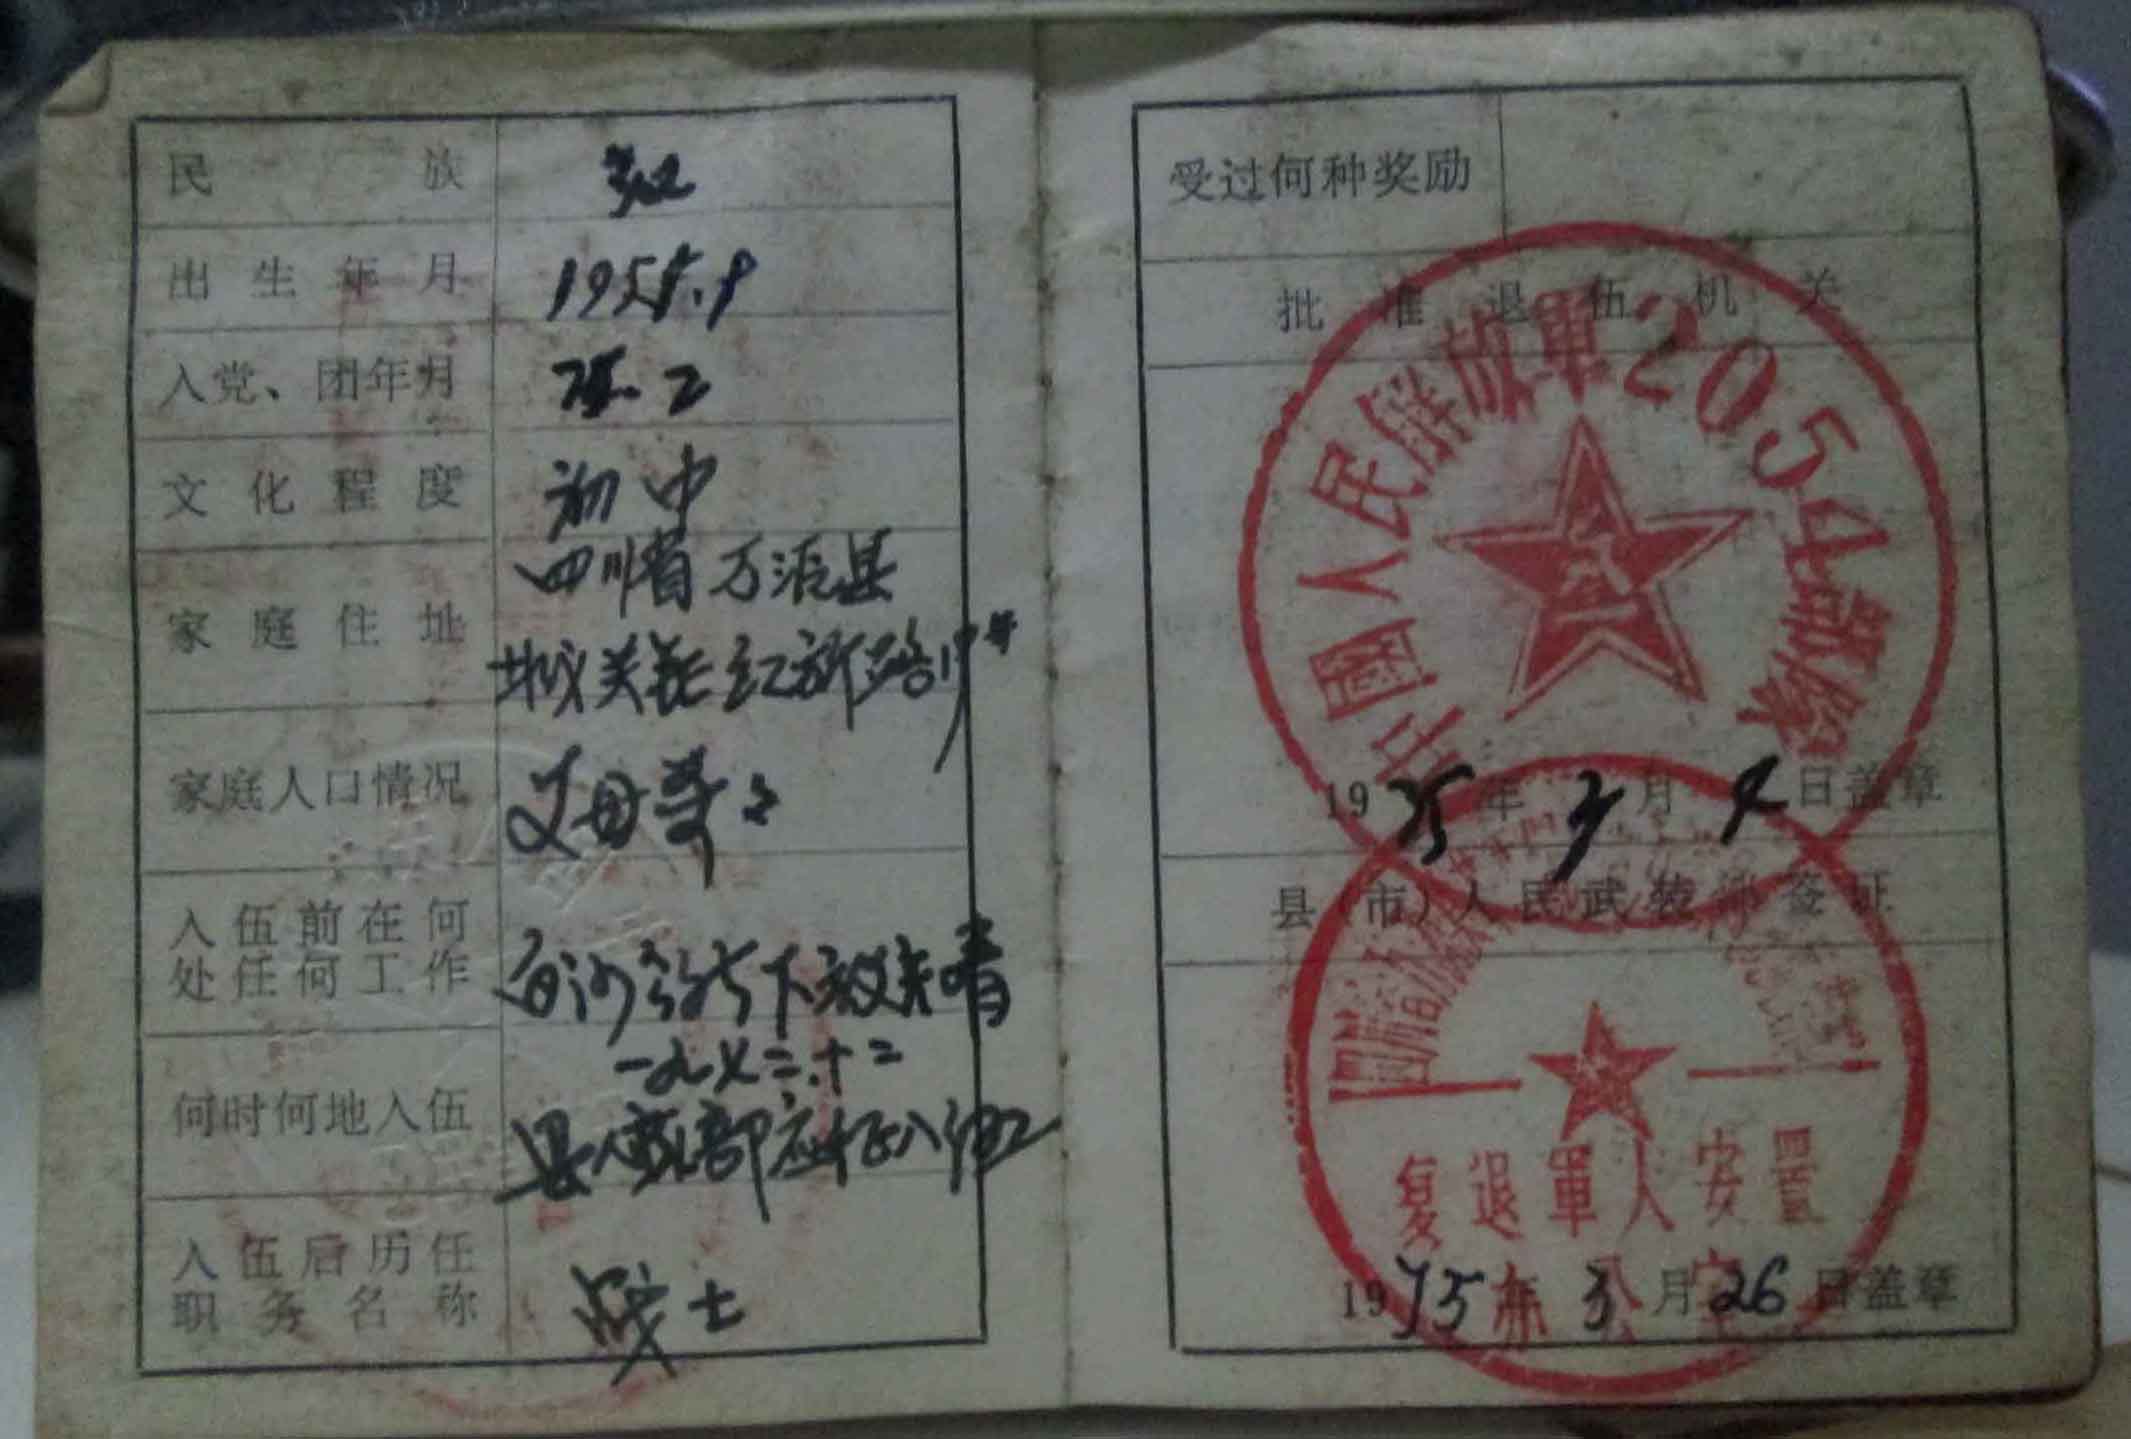 民族 汉
出生年月 1955.9
入党、团年月
文化程度 初中
家庭住址 四川省万源县
城关镇红旗路19号
家庭人口情况 父母哥々
入伍前在何
处任何工作 白沙 下放知青
何时何地入伍 一九七二.十二
县人武部应征入伍
入伍后历任
职务名称 战士
受过何种奖励
批准退伍机关
中國人民解放軍2054部隊
1975年3月4日盖章
县(市)人民武装部签证
复退軍人安置
办公室
1975年3月26日盖章